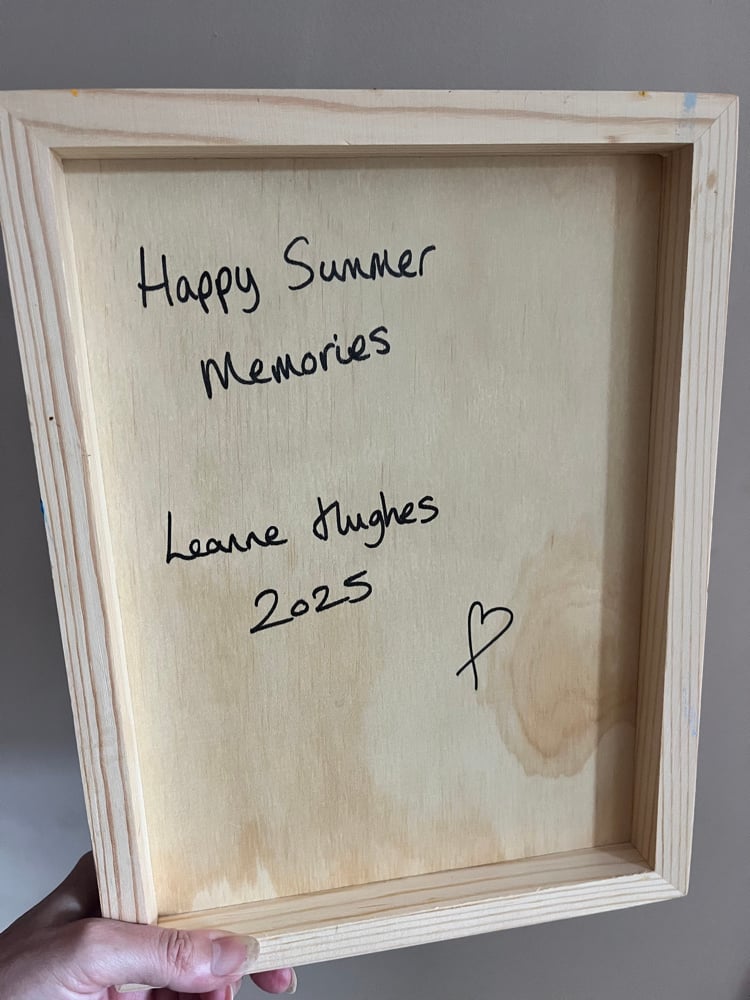 Happy Summer
Memories
Leanne Hughes
2025